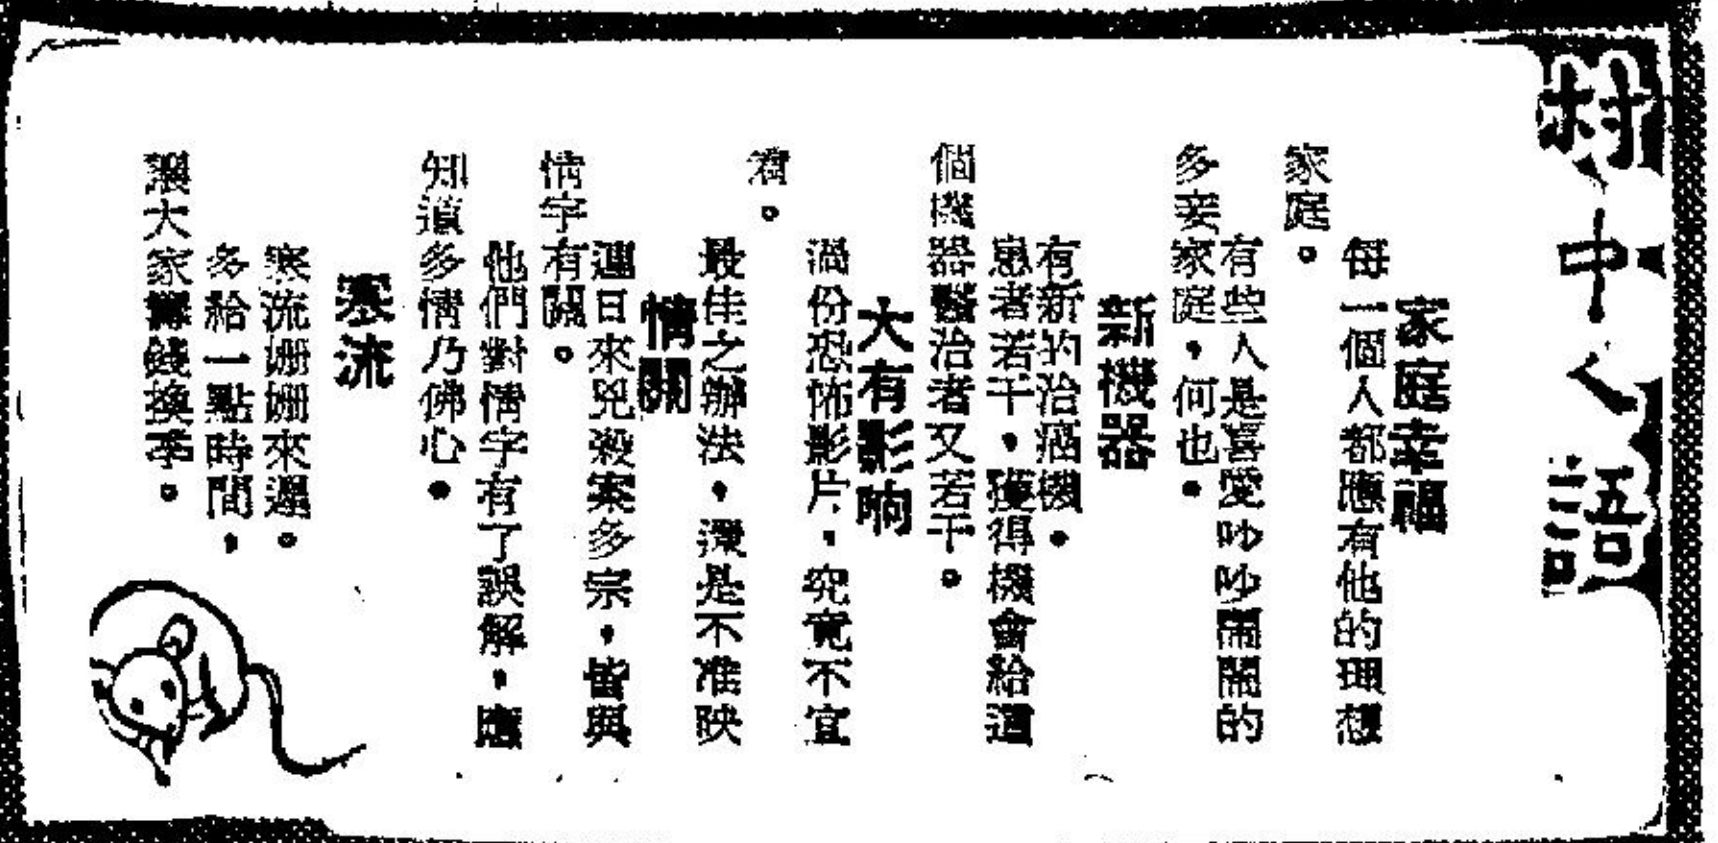 村中人語
家庭幸福
每一個人都應有他的理想
家庭。
有些人是喜愛吵吵鬧鬧的
多妾家庭，何也。
新機器
有新的治癌機。
患者若干，獲得機會給這
個機器醫治者又若干。
大有影响
過份恐怖影片，究竟不宜
看。
最佳之辦法，還是不准映
情關
連日來兇殺案多宗，皆與
情字有關。
他們對情字有了誤解，應
知道多情乃佛心。
寒流
寒流姍姍來遲。
多給一點時間，
讓大家籌錢換季。